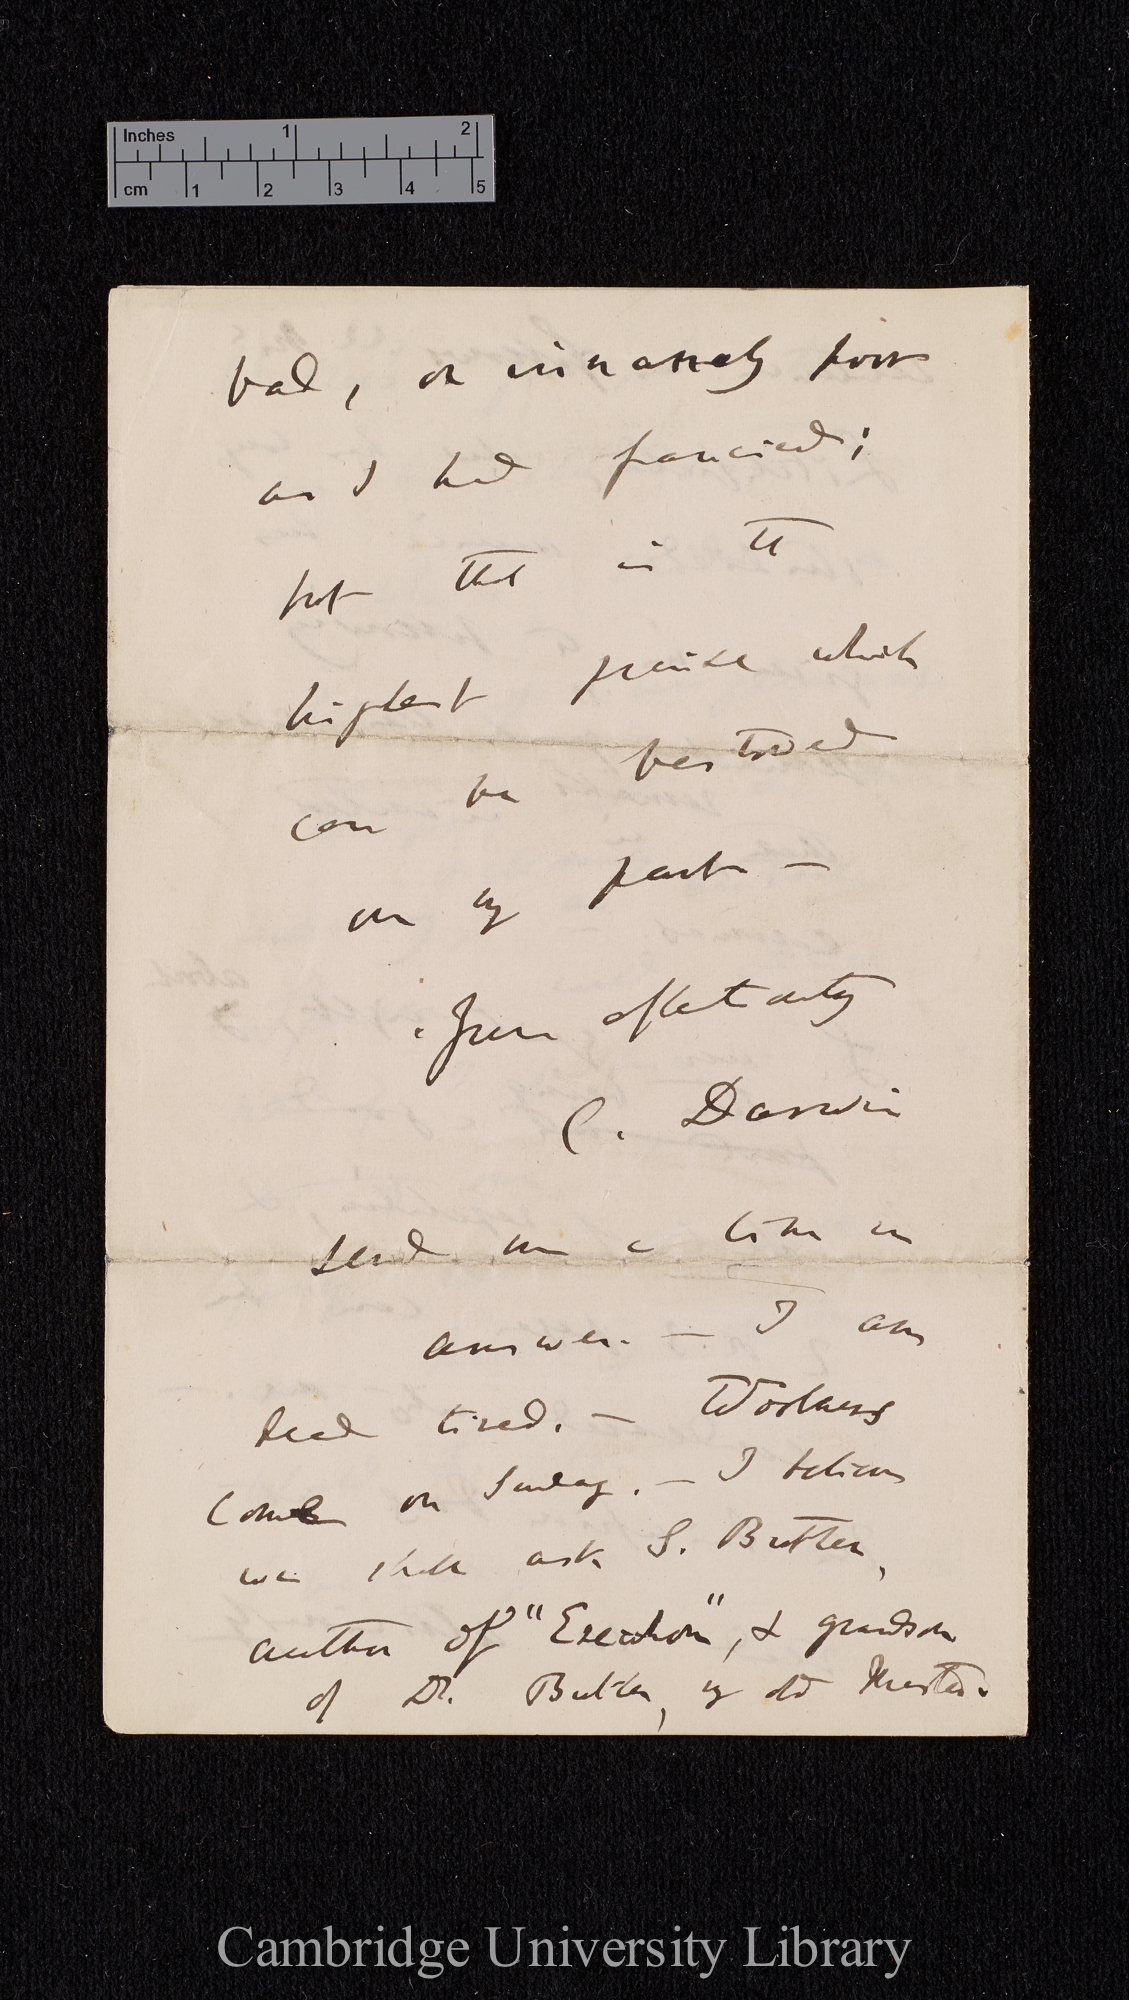 Inches 1 2
cm 1 2 3 4 5
bad, or immensely poor
as I had fancied;
but that is the
highest praise which
can be bestowed
on my part —
Yours affectionately
C. Darwin
Send me a line in
answer. — I am
dead tired. — Woolners
come on Sunday. — I believe
we shall ask S. Butler,
author of "Erewhon", & grandson
of Dr. Butler, my old Master.
Cambridge University Library